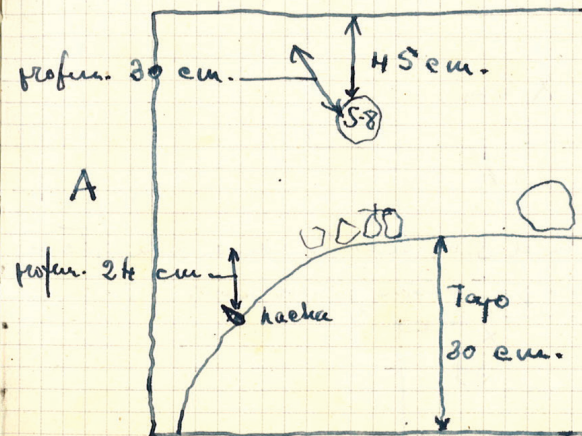 45 cm.
profun. 30 cm.
S-8
A
profun. 24 cm.
hacha
Tajo
30 cm.